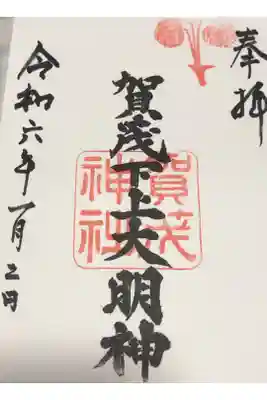 奉拝
賀茂下上大明神
賀茂神社
令和六年一月二日